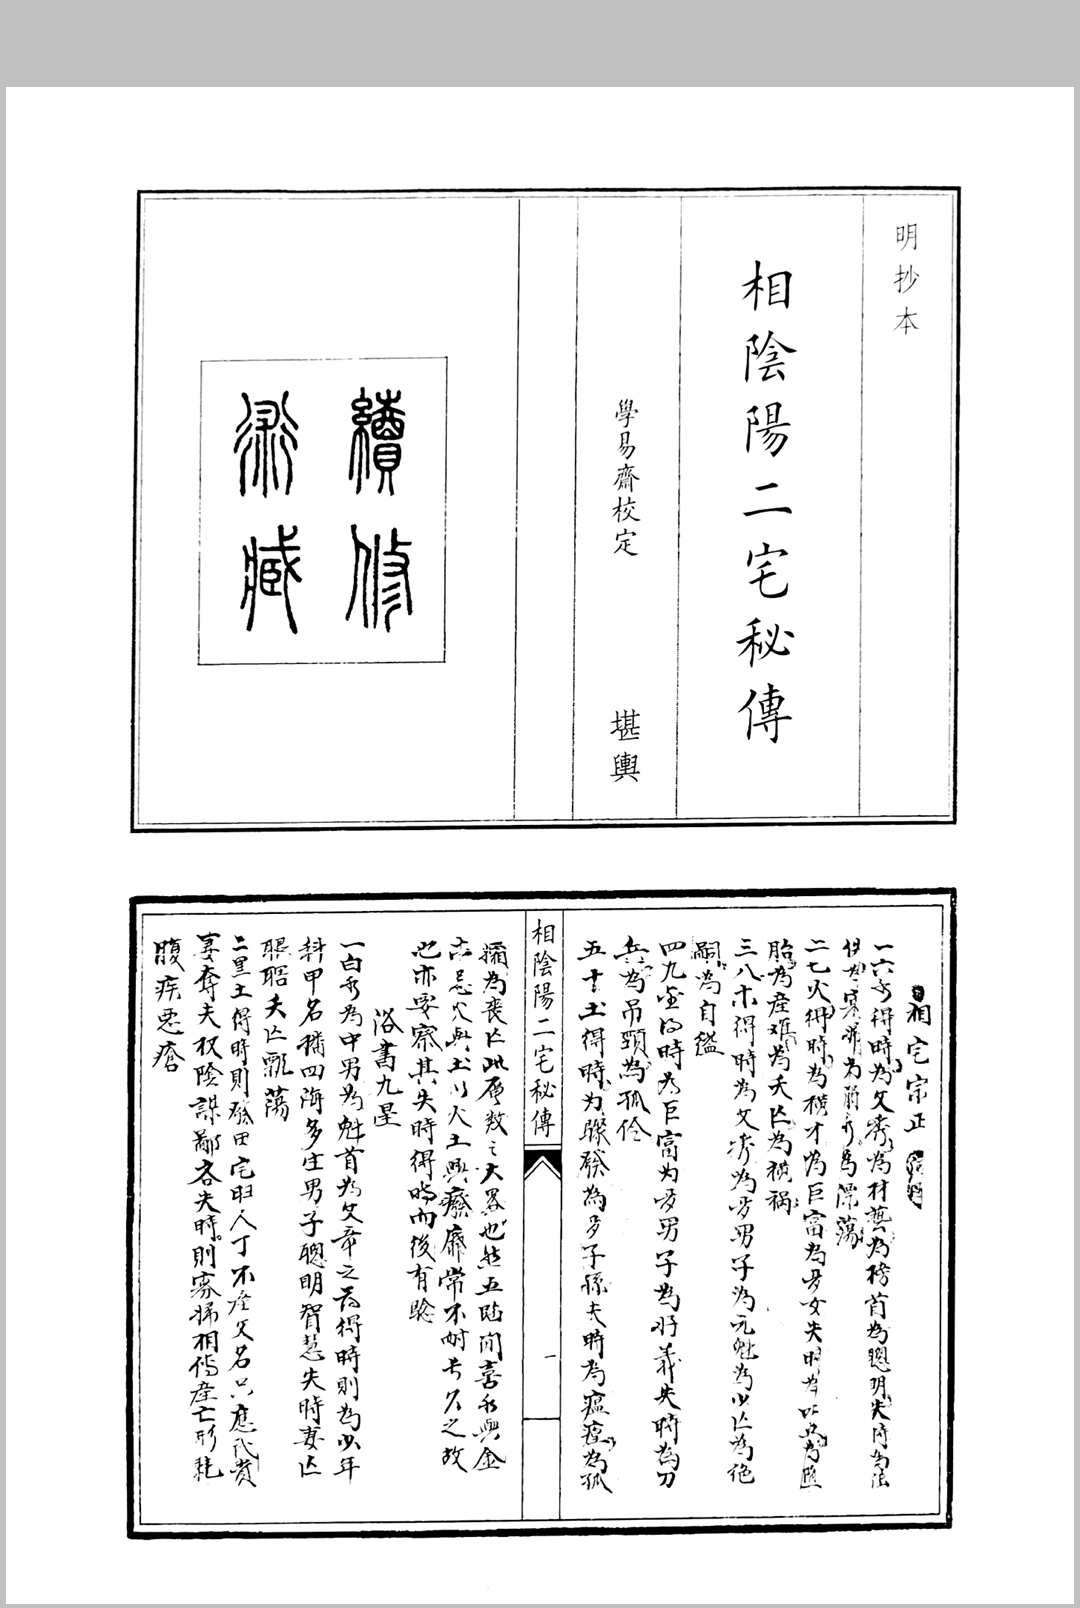 明抄本
相陰陽二宅秘傳
學易齋校定
堪輿
續修
術藏
相宅宗正
一六水得時為文秀為材藝為榜首為聰明失時為淫
佚為寡婦為
為漂蕩
二七火得時為橫才為巨富為多女失時為
為墮
胎為產難為夭亡為橫禍
三八木得時為文秀為多男子為元魁為少亡為絕
嗣為自縊
四九金得時為巨富為多男子為好義失時為刀
兵為吊頸為孤伶
五十土得時為驟發為多子孫失時為瘟㾮為孤
孀為喪亡此層數之大畧也然五臨間喜水與金
忌火與土以火土興廢靡常不耐長久之故
也亦要察其失時得時而後有驗
洛書九星
一白水為中男為魁首為文章之
得時則為少年
科甲名播四海多生男子聰明智慧失時妻亡
眼瞎夭亡飄蕩
二黑土得時則發田宅旺人丁不產文名只應武貴
妻奪夫權陰謀鄙吝失時則寡婦相傳產亡刑耗
腹疾惡瘡
相陰陽二宅秘傳
一